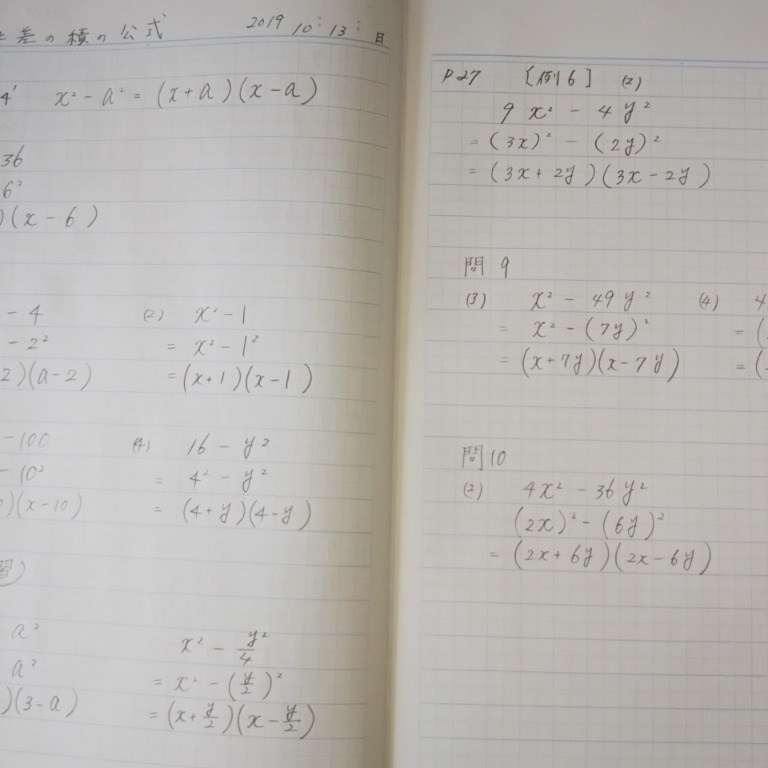 差の積の公式 2019 10:13: 日
4' x² - a² = (x+a)(x-a)
36
6²
)(x-6)
- 4 (2) x² - 1
- 2² = x² - 1²
2)(a-2) = (x+1)(x-1)
-100 (4) 16 - y²
- 10² = 4² - y²
)(x-10) = (4+y)(4-y)
習)
a² x² - y²/4
a² = x² - (y/2)²
)(3-a) = (x+y/2)(x-y/2)
P27 [例6] (2)
9x² - 4y²
= (3x)² - (2y)²
= (3x+2y)(3x-2y)
問9
(3) x² - 49y² (4) 4
= x² - (7y)² = (
= (x+7y)(x-7y) = (
問10
(2) 4x² - 36y²
(2x)² - (6y)²
= (2x+6y)(2x-6y)